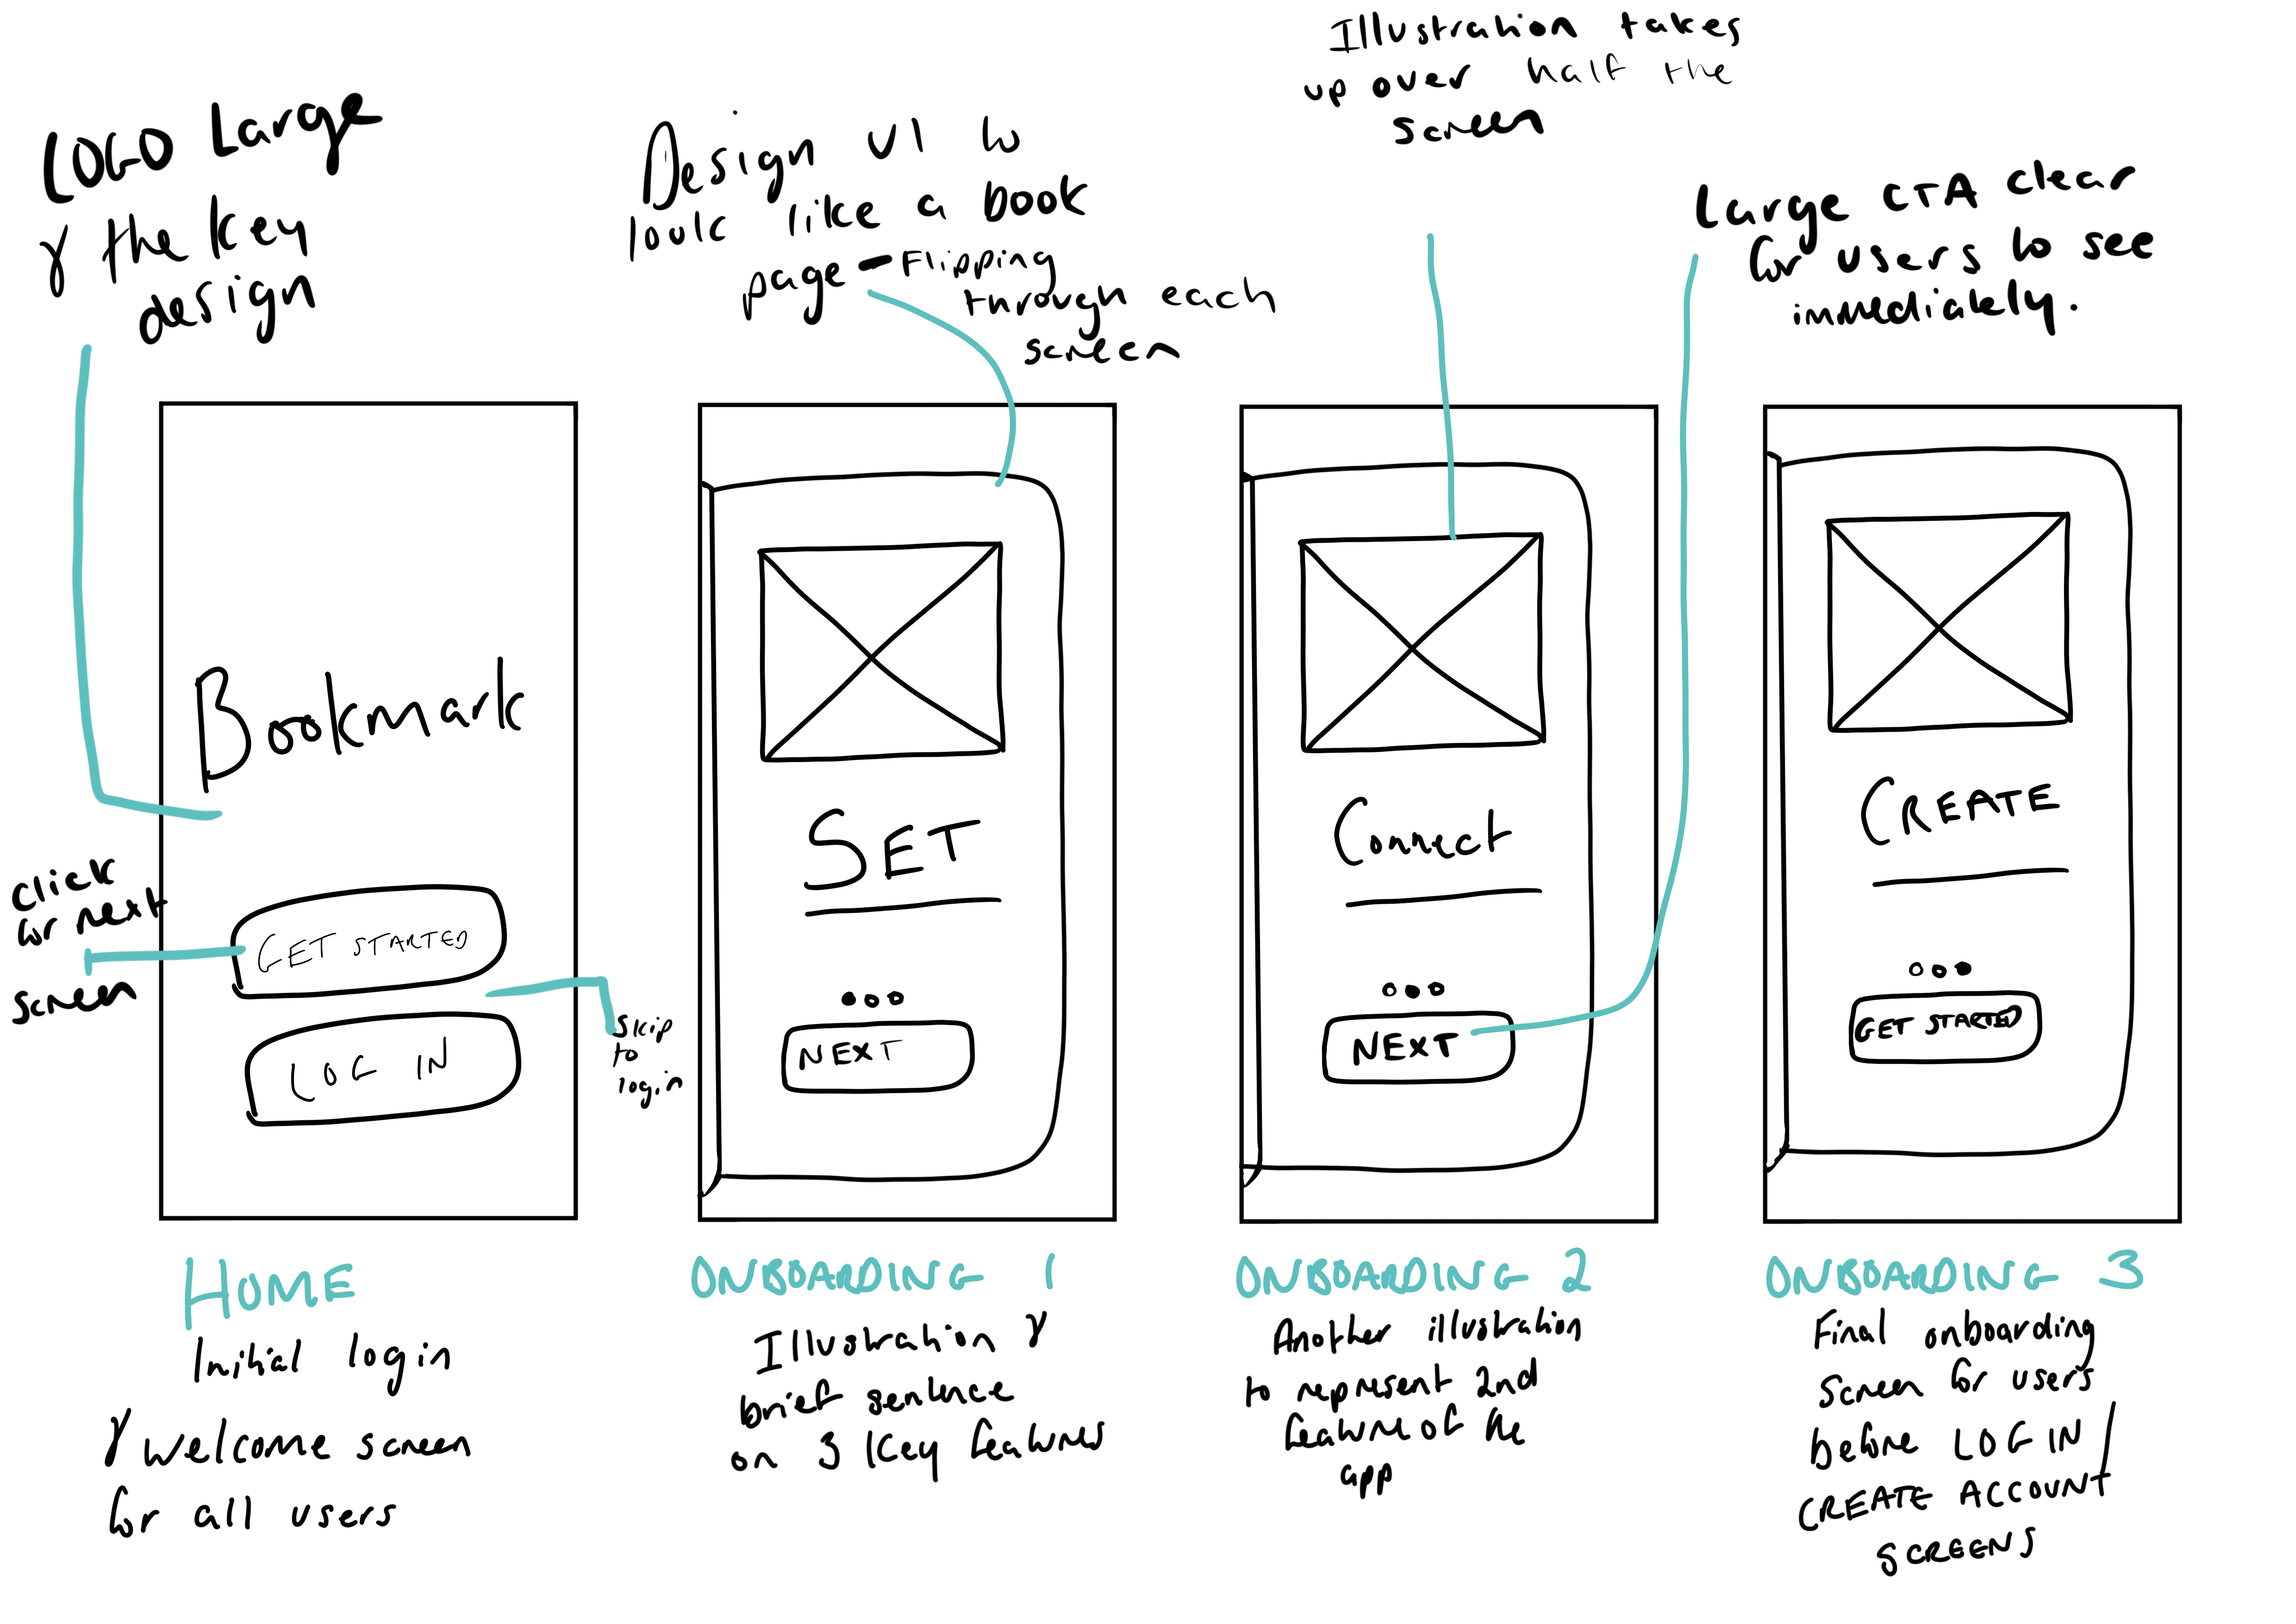 LOGO Large
& the key
design
Design UI to
look like a book
page - Flipping
through each
screen
Illustration takes
up over half the
screen
Large CTA clear
for users to see
immediately.
Bookmark
GET STARTED
LOG IN
click
for next
screen
Skip
to
login
SET
NEXT
Connect
NEXT
CREATE
GET STARTED
HOME
Initial login
& welcome screen
for all users
ONBOARDING 1
Illustration &
brief sentence
on 3 key features
ONBOARDING 2
Another illustration
to represent 2nd
feature of the
app
ONBOARDING 3
Final onboarding
screen for users
before LOG IN/
CREATE ACCOUNT
SCREENS